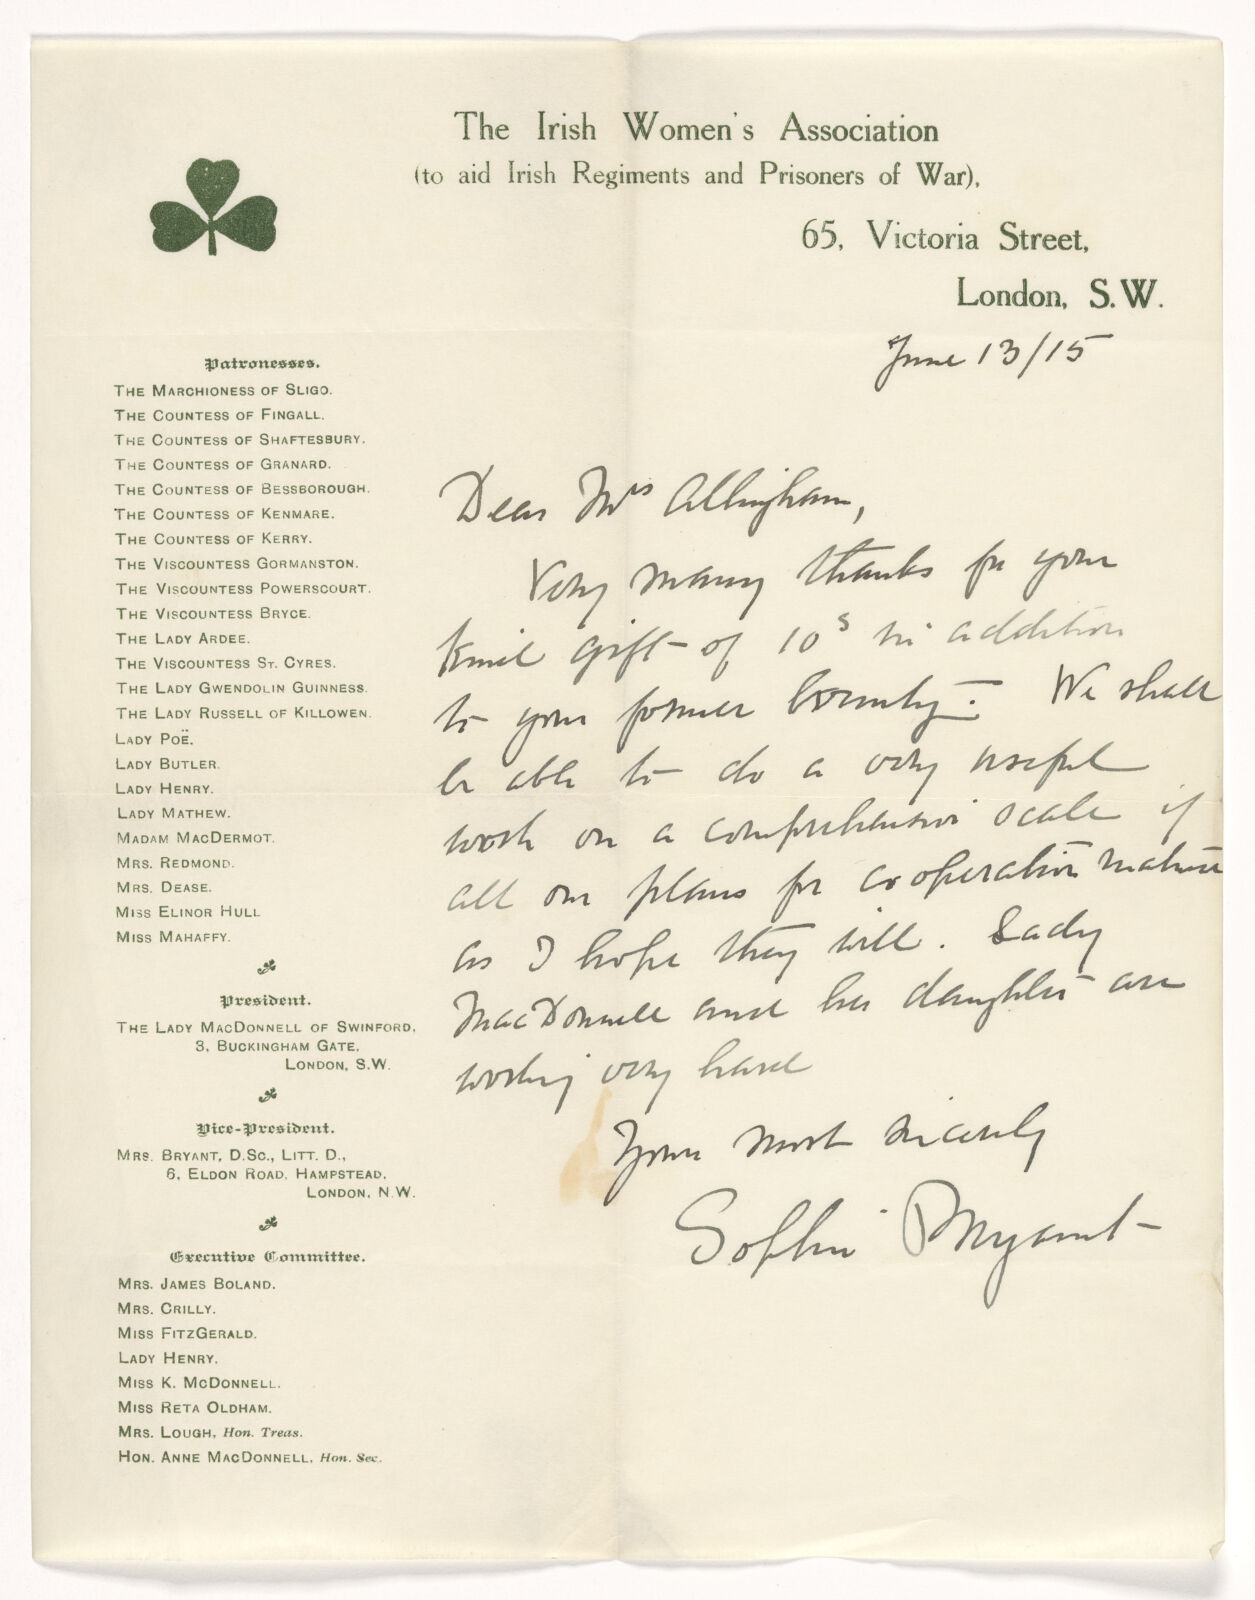 The Irish Women's Association
(to aid Irish Regiments and Prisoners of War),
65, Victoria Street,
London, S.W.
June 13/15
Patronesses.
THE MARCHIONESS OF SLIGO.
THE COUNTESS OF FINGALL.
THE COUNTESS OF SHAFTESBURY.
THE COUNTESS OF GRANARD.
THE COUNTESS OF BESSBOROUGH.
THE COUNTESS OF KENMARE.
THE COUNTESS OF KERRY.
THE VISCOUNTESS GORMANSTON.
THE VISCOUNTESS POWERSCOURT.
THE VISCOUNTESS BRYCE.
THE LADY ARDEE.
THE VISCOUNTESS ST. CYRES.
THE LADY GWENDOLIN GUINNESS.
THE LADY RUSSELL OF KILLOWEN.
LADY POË.
LADY BUTLER.
LADY HENRY.
LADY MATHEW.
MADAM MACDERMOT.
MRS. REDMOND.
MRS. DEASE.
MISS ELINOR HULL
MISS MAHAFFY.
President.
THE LADY MACDONNELL OF SWINFORD,
3, BUCKINGHAM GATE,
LONDON, S.W.
Vice-President.
MRS. BRYANT, D.SC., LITT. D.,
6, ELDON ROAD, HAMPSTEAD,
LONDON, N.W.
Executive Committee.
MRS. JAMES BOLAND.
MRS. CRILLY.
MISS FITZGERALD.
LADY HENRY.
MISS K. MCDONNELL.
MISS RETA OLDHAM.
MRS. LOUGH, Hon. Treas.
HON. ANNE MACDONNELL, Hon. Sec.
Dear Mrs Allingham,
Very many thanks for your
kind gift of 10s in addition
to your former bounty. We shall
be able to do a very useful
work on a comprehensive scale if
all our plans for cooperation mature
as I hope they will. Lady
MacDonnell and her daughter are
working very hard
Yours most sincerely
Sophie Bryant